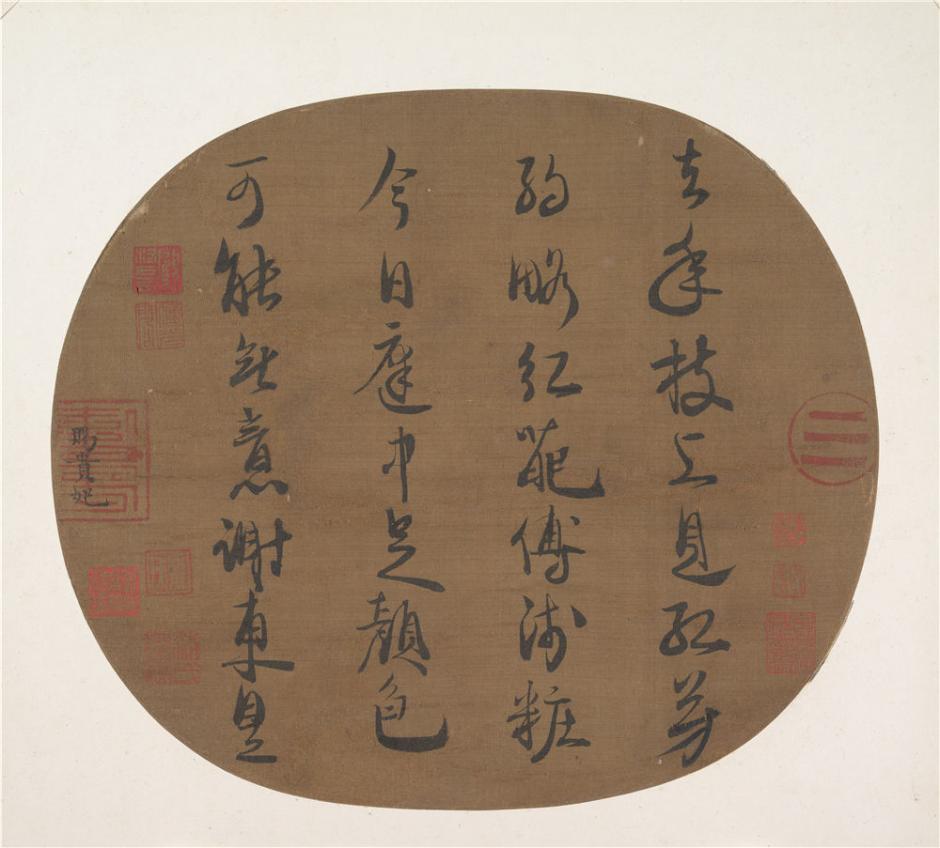 去年枝上見孤芳
約略紅葩傅淺粧
今日庭中足顏色
可能無意謝東皇
賜貴妃